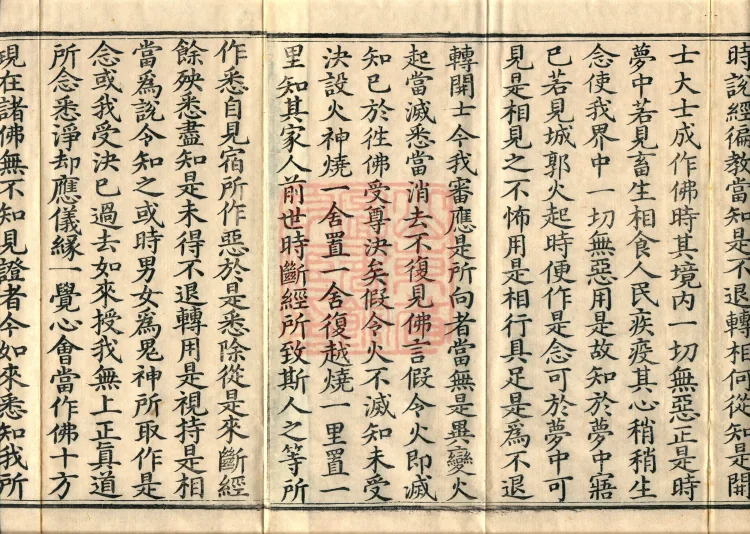 時說經徧教當知是不退轉相何從知是開
士大士成作佛時其境内一切無惡正是時
夢中若見畜生相食人民疾疫其心稍稍生
念使我界中一切無惡用是故知於夢中寤
已若見城郭火起時便作是念可於夢中可
見是相見之不怖用是相行具足是爲不退
轉開士今我審應是所向者當無是異變火
起當滅悉當消去不復見佛言假令火即滅
知已於徃佛受尊決矣假令火不滅知未受
決設火神燒一舍置一舍復越燒一里置一
里知其家人前世時斷經所致斯人之等所
作悉自見宿所作惡於是悉除從是來斷經
餘殃悉盡知是未得不退轉用是視持是相
當爲說令知之或時男女爲鬼神所取作是
念或我受決已過去如來授我無上正眞道
所念悉淨却應儀緣一覺心會當作佛十方
現在諸佛無不知見證者今如來悉知我所